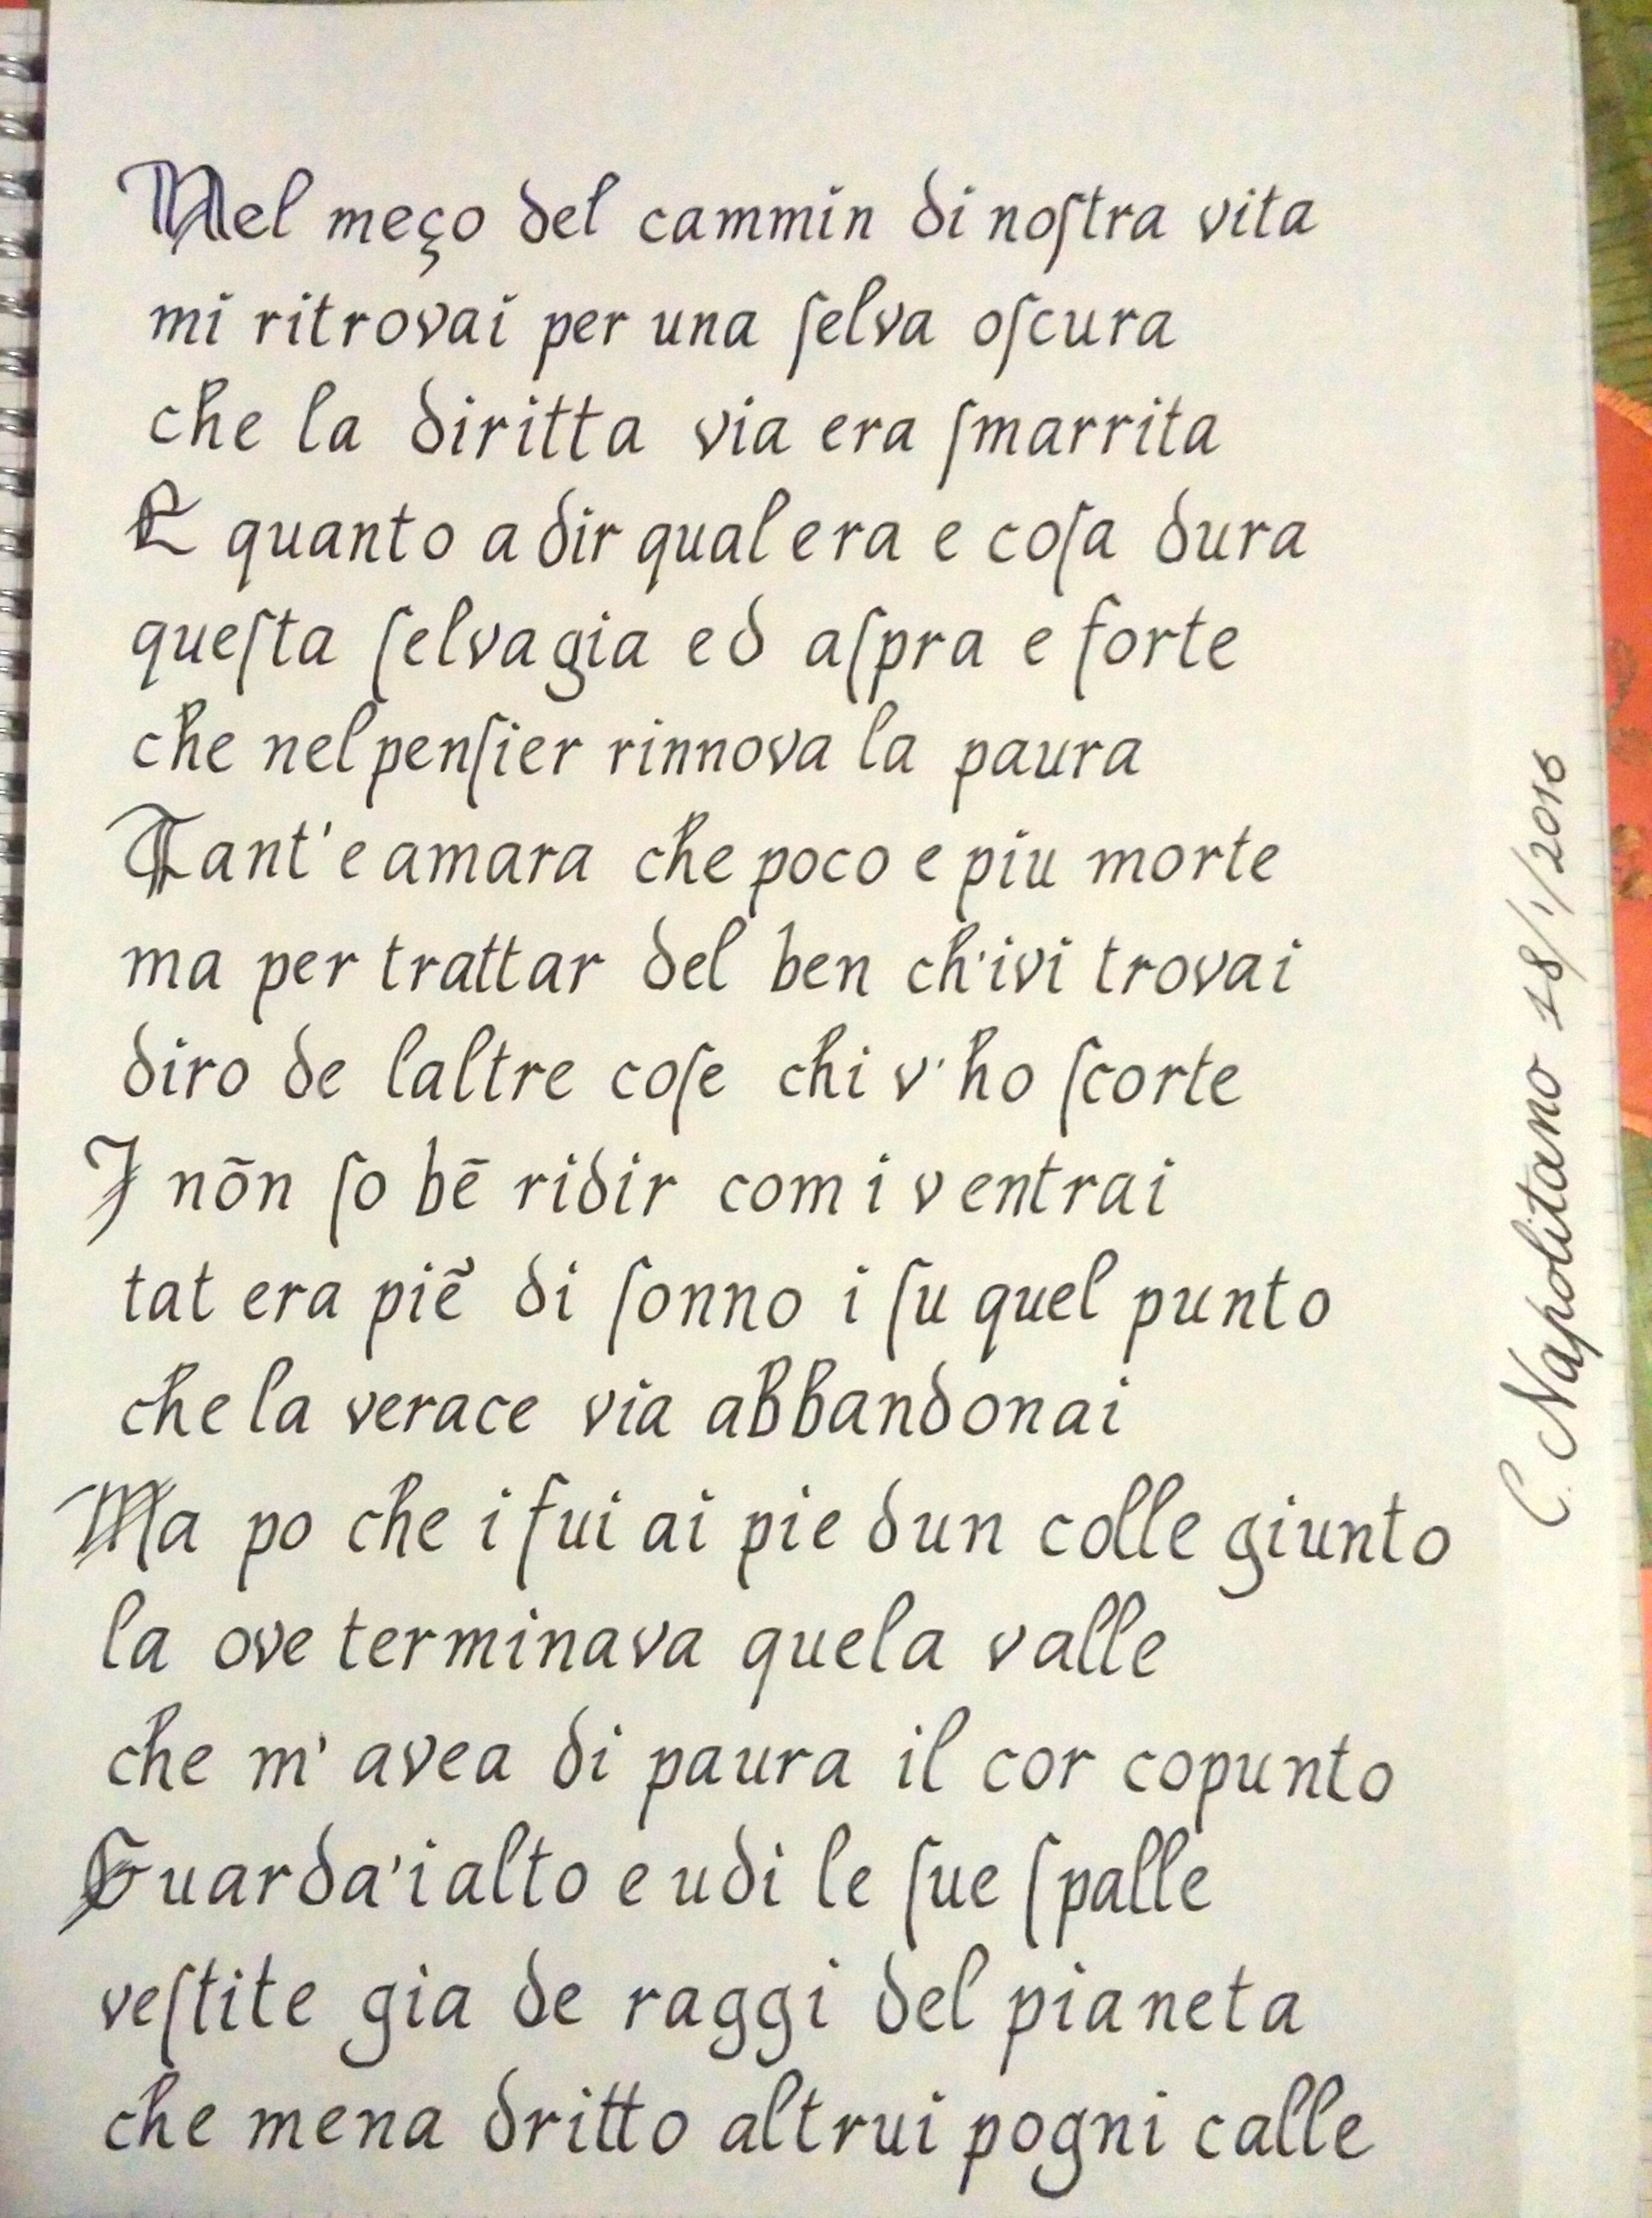 Nel meço del cammin di noſtra vita
mi ritrovai per una ſelva oſcura
che la diritta via era ſmarrita
E quanto a dir qual era e coſa dura
queſta ſelvagia ed aſpra e forte
che nel penſier rinnova la paura
Tant'e amara che poco e piu morte
ma per trattar del ben ch'ivi trovai
diro de laltre coſe chi v'ho ſcorte
I nōn ſo bē ridir com i v entrai
tat era piē di ſonno i ſu quel punto
che la verace via abbandonai
Ma po che i fui ai pie dun colle giunto
la ove terminava quela valle
che m'avea di paura il cor copunto
Guarda'i alto e udi le ſue ſpalle
veſtite gia de raggi del pianeta
che mena dritto altrui pogni calle
C. Napolitano 18/1/2016